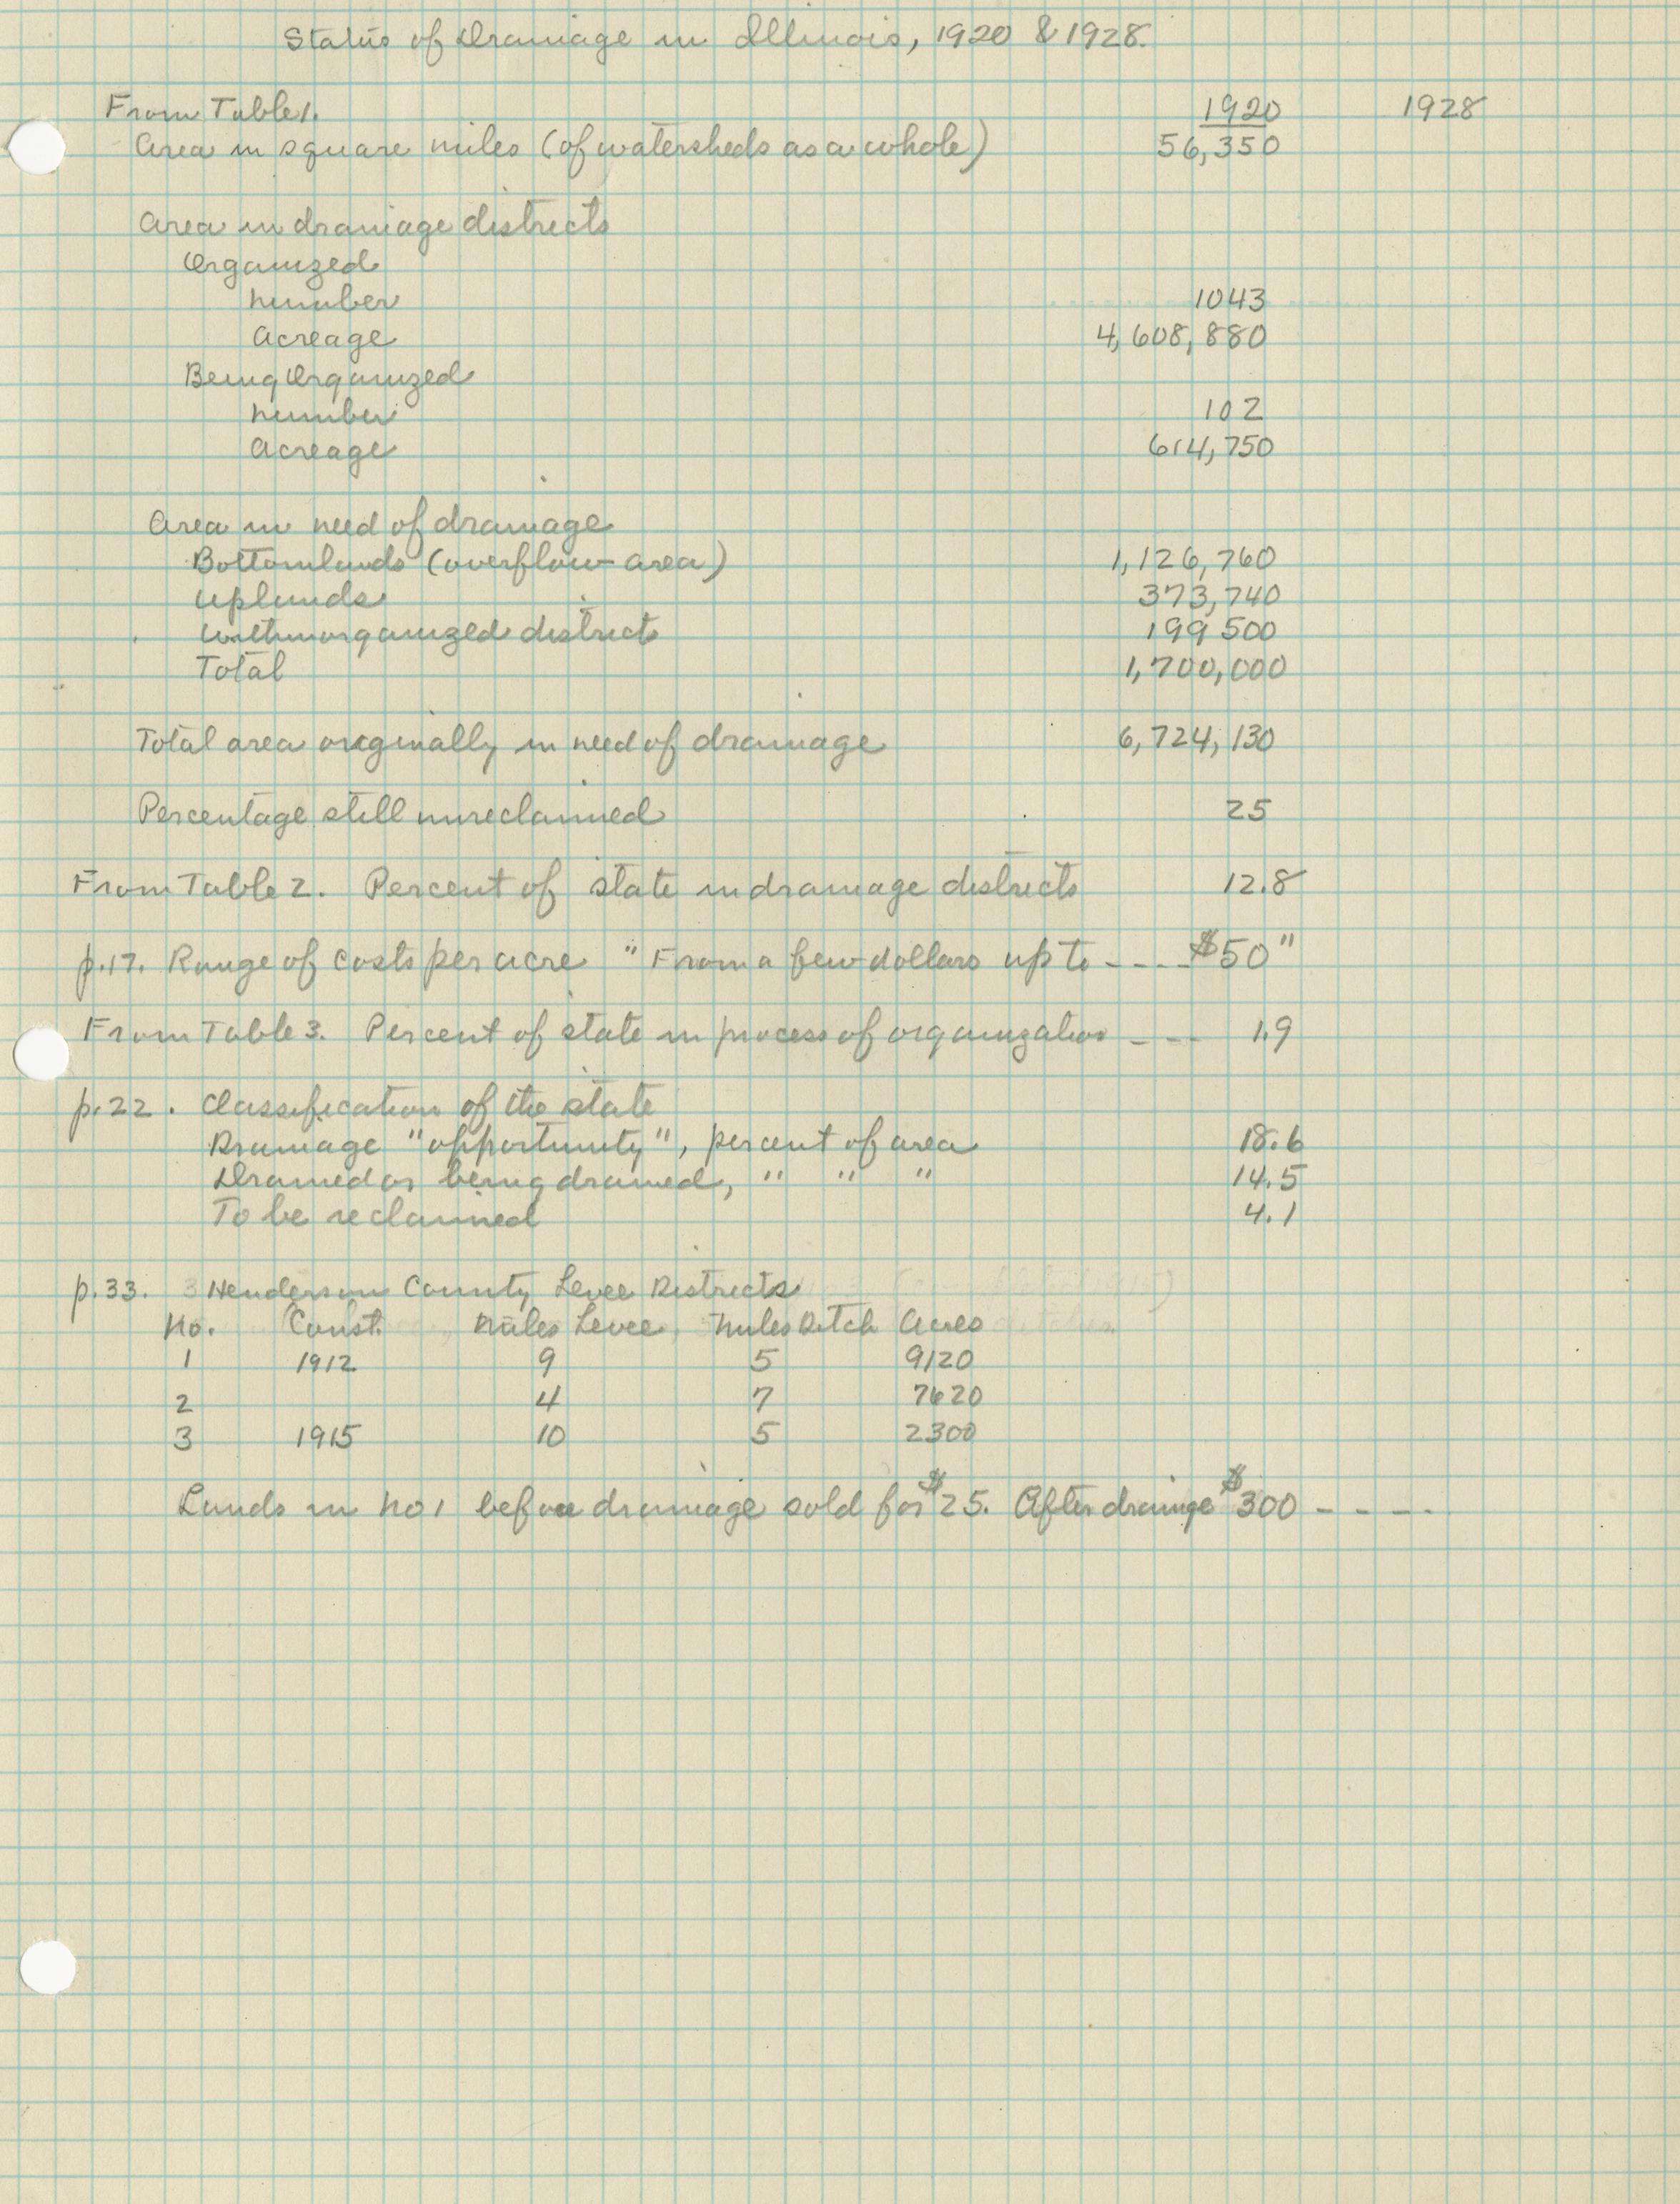 Status of Drainage in Illinois, 1920 & 1928.
From Table 1. 1920 1928
Area in square miles (of watersheds as a whole) 56,350
Area in drainage districts
Organized
Number 1043
Acreage 4,608,880
Being Organized
Number 102
Acreage 614,750
Area in need of drainage
Bottomlands (overflow area) 1,126,760
Uplands 373,740
Within organized districts 199 500
Total 1,700,000
Total area originally in need of drainage 6,724,130
Percentage still unreclaimed 25
From Table 2. Percent of state in drainage districts 12.8
p.17. Range of costs per acre "From a few dollars up to ---- $50"
From Table 3. Percent of state in process of organization --- 1.9
p.22. Classification of the state
Drainage "opportunity", percent of area 18.6
Drained or being drained, " " " 14.5
To be reclaimed 4.1
p.33. 3 Henderson County Levee Districts
No. Const. Miles Levee, Miles Ditch Acres
1 1912 9 5 9120
2 4 7 7620
3 1915 10 5 2300
Lands in No 1 before drainage sold for $25. After drainge $300 ----